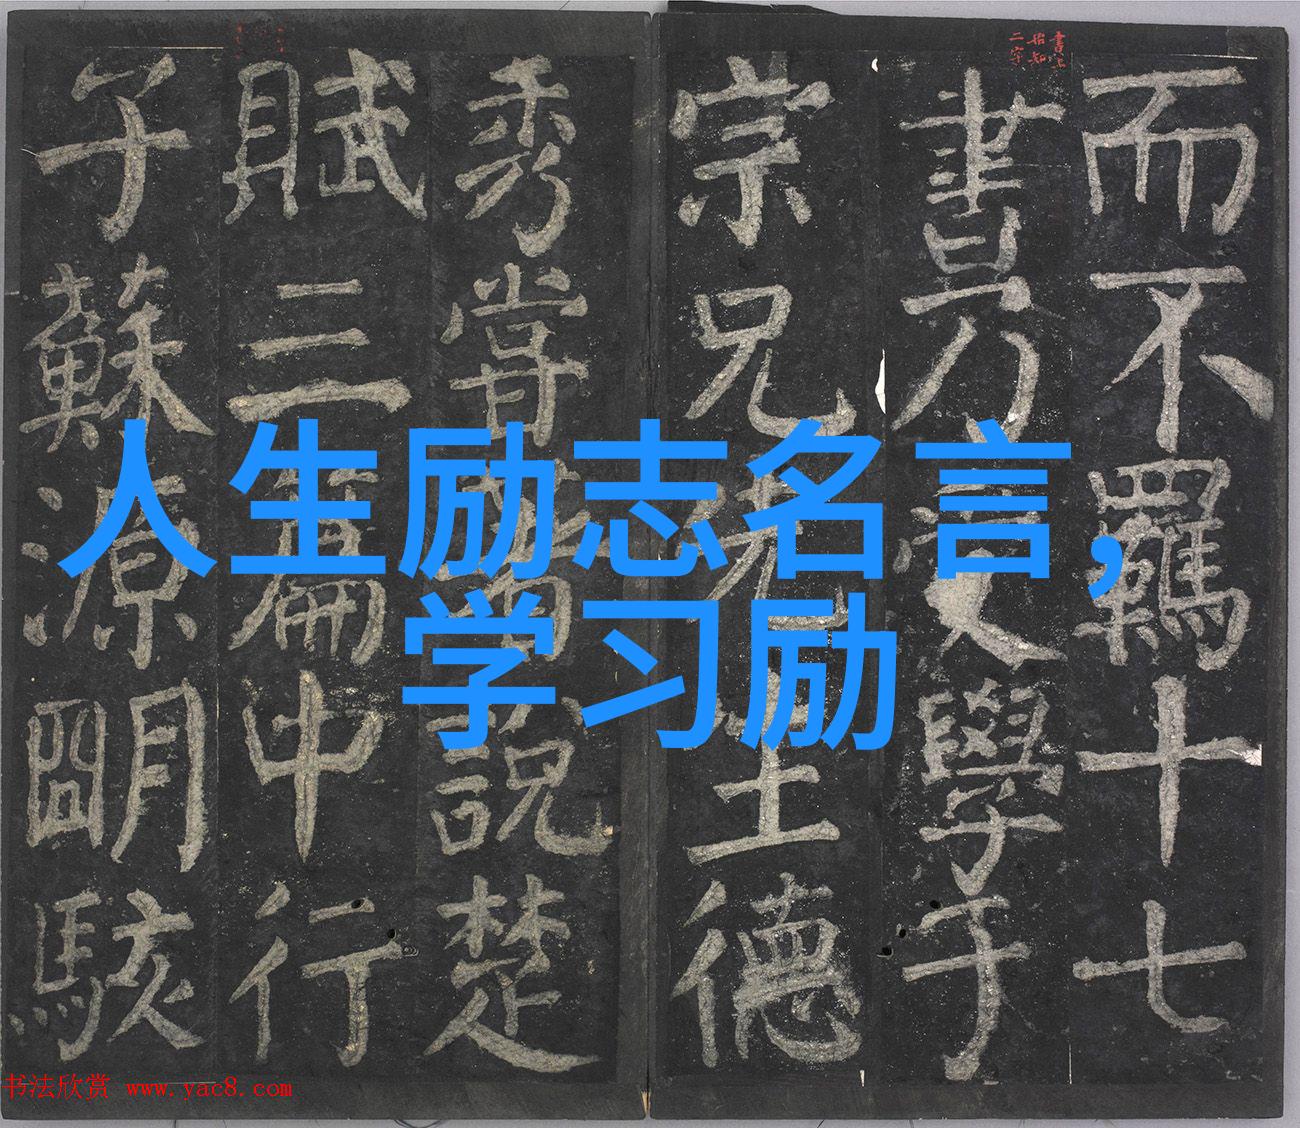 人生励志名言，
学习励
而不羈十七
書乃學于
宗兄士德
秀嘗著說楚
賦三篇中行
子蘇源明駭
书法欣赏 www.yac8.com